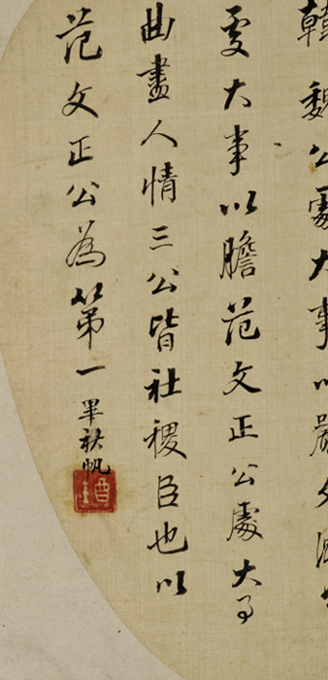 韓魏公處大事以嚴
處大事以膽范文正公處大事
曲盡人情三公皆社稷臣也以
范文正公為第一
畢秋帆